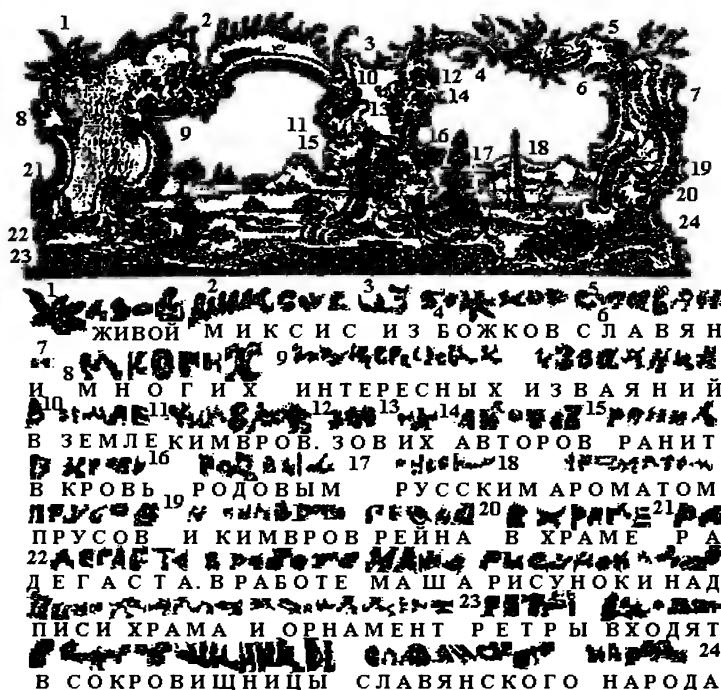 1 2 3 4 5 6 7
8 9 10 11 12 13 14 15 16 17 18 19 20
21 22 23 24
1 2 3 4 5 6
ЖИВОЙ МИКСИС ИЗ БОЖКОВ СЛАВЯН
7 8 9
И МНОГИХ ИНТЕРЕСНЫХ ИЗВАЯНИЙ
10 11 12 13 14 15
В ЗЕМЛЕ КИМВРОВ. ЗОВ ИХ АВТОРОВ РАНИТ
16 17 18
В КРОВЬ РОДОВЫМ РУССКИМ АРОМАТОМ
19 20 21
ПРУСОВ И КИМВРОВ РЕЙНА В ХРАМЕ РА
22
ДЕГАСТА. В РАБОТЕ МАША РИСУНОК И НАД
23
ПИСИ ХРАМА И ОРНАМЕНТ РЕТРЫ ВХОДЯТ
24
В СОКРОВИЩНИЦЫ СЛАВЯНСКОГО НАРОДА